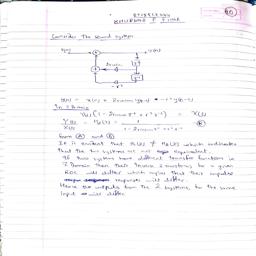 Consider the second system
x(n)
y(n)
2rcosω
-r²
y(n) = x(n) + 2rcosω y(n-1) - r² y(n-2)
In z-domain
Y(z) [1 - 2rcosω z⁻¹ + r² z⁻²] = X(z)
Y(z)/X(z) = H₂(z) = 1/(1 - 2rcosω z⁻¹ + r² z⁻²) (B)
from (A) and (B)
It is evident that H₁(z) ≠ H₂(z) which indicates
that the two systems are not equivalent.
If two systems have different transfer functions in
Z domain then their inverse Z transforms for a given
ROC will differ which implies that their impulse
responses will differ.
Hence the outputs from the 2 systems, for the same
input will differ